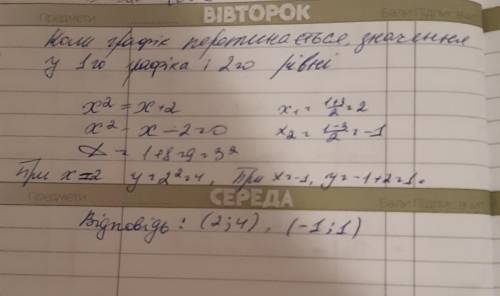 Предмети ВІВТОРОК Бали Підпис
Коли графік перетинається, значення
у 1го графіка і 2го рівні
x² = x+2 x₁ = (1+3)/2 = 2
x² - x - 2 = 0 x₂ = (1-3)/2 = -1
D = 1+8=9=3²
При x=2 y=2²=4, При x=-1, y=-1+2=1.
Предмети СЕРЕДА Бали Підпис
Відповідь: (2;4), (-1;1)